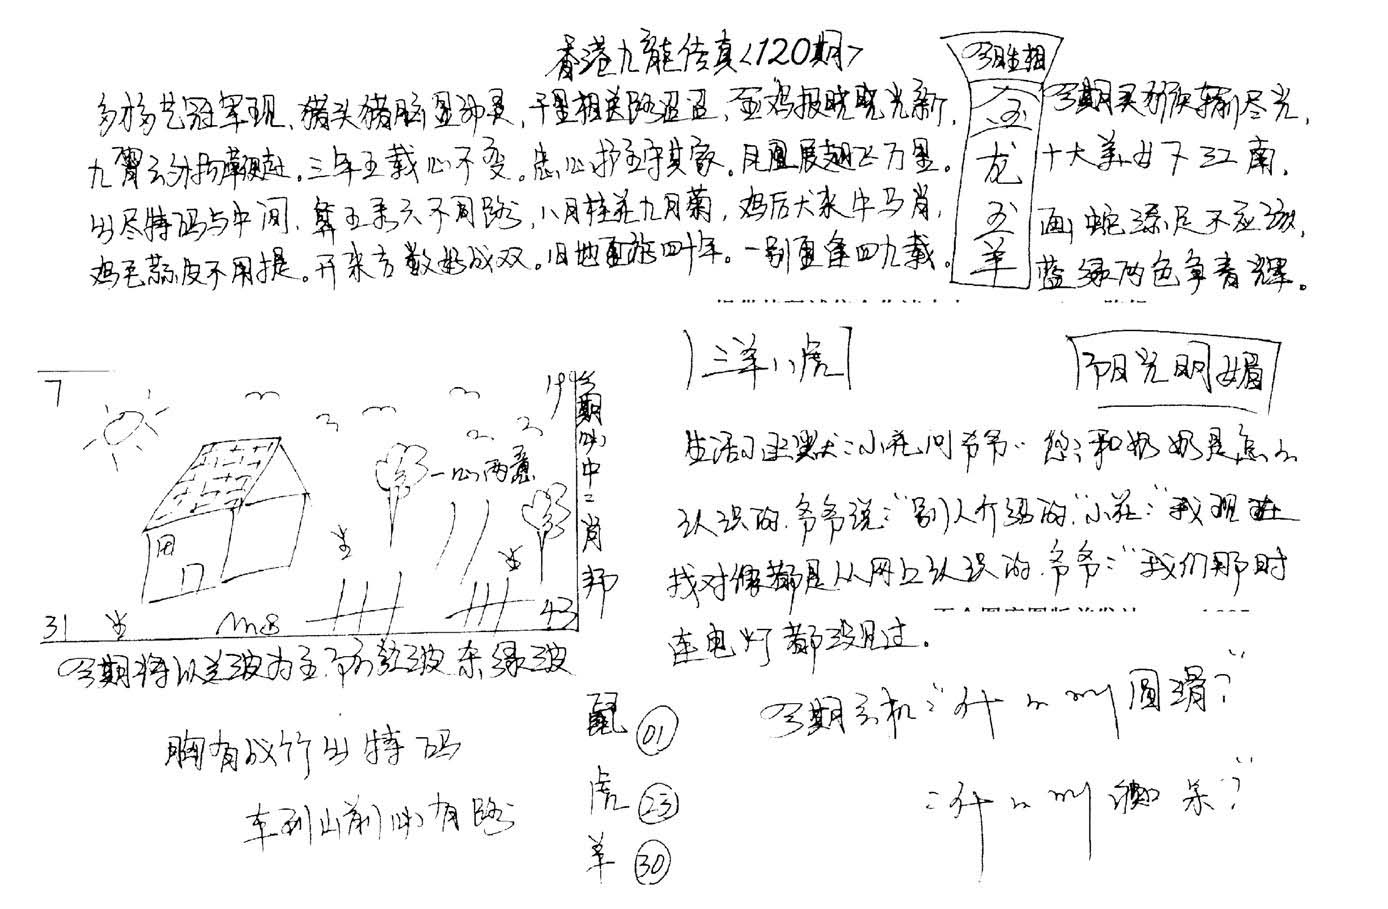 香港九龙传真<120期>
今期生相
多才多艺冠军现、猪头猪脑显神灵,千里相送路迢迢,金鸡报晓晓光新,
今期买猴猴输尽光,
九霄云外扬鞭赶。三年五载心不变。忠心护主守其家。凤凰展翅飞万里。
龙
十大美女下江南,
出尽特码与中间,算五来六不同路,八月桂花九月菊,鸡后犬来牛马肖,
五
画蛇添足不应该,
鸡毛蒜皮不用提。开来方数好成双。旧地重游四十年。一别重逢四九载。
羊
蓝绿两色争春辉。
三羊八虎
阳光明媚
7
19
今期必中二肖邦
一心两意
田
31
43
今期特以兰波为主、防红波杂绿波
生活幽默:小花问爷爷:您和奶奶是怎么
认识的.爷爷说:"别人介绍的"小花:"我现在
找对像都是从网上认识的.爷爷:"我们那时
连电灯都没见过。
今期玄机:"什么叫圆滑?"
:什么叫
胸有成竹出特码
车到山前必有路
鼠 01
虎 23
羊 30